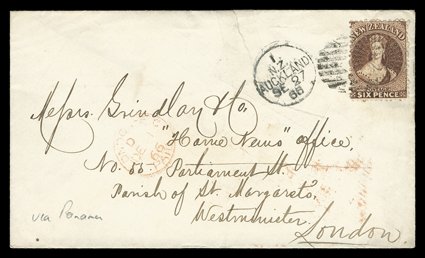 NEW ZEALAND
SIX PENCE
1
N.Z.
AUCKLAND
SE 27
66
Messrs. Grindlay & Co.
"Home News" office,
No. 55 Parliament St.
Parish of St. Margaret's
Westminster
London
via Panama